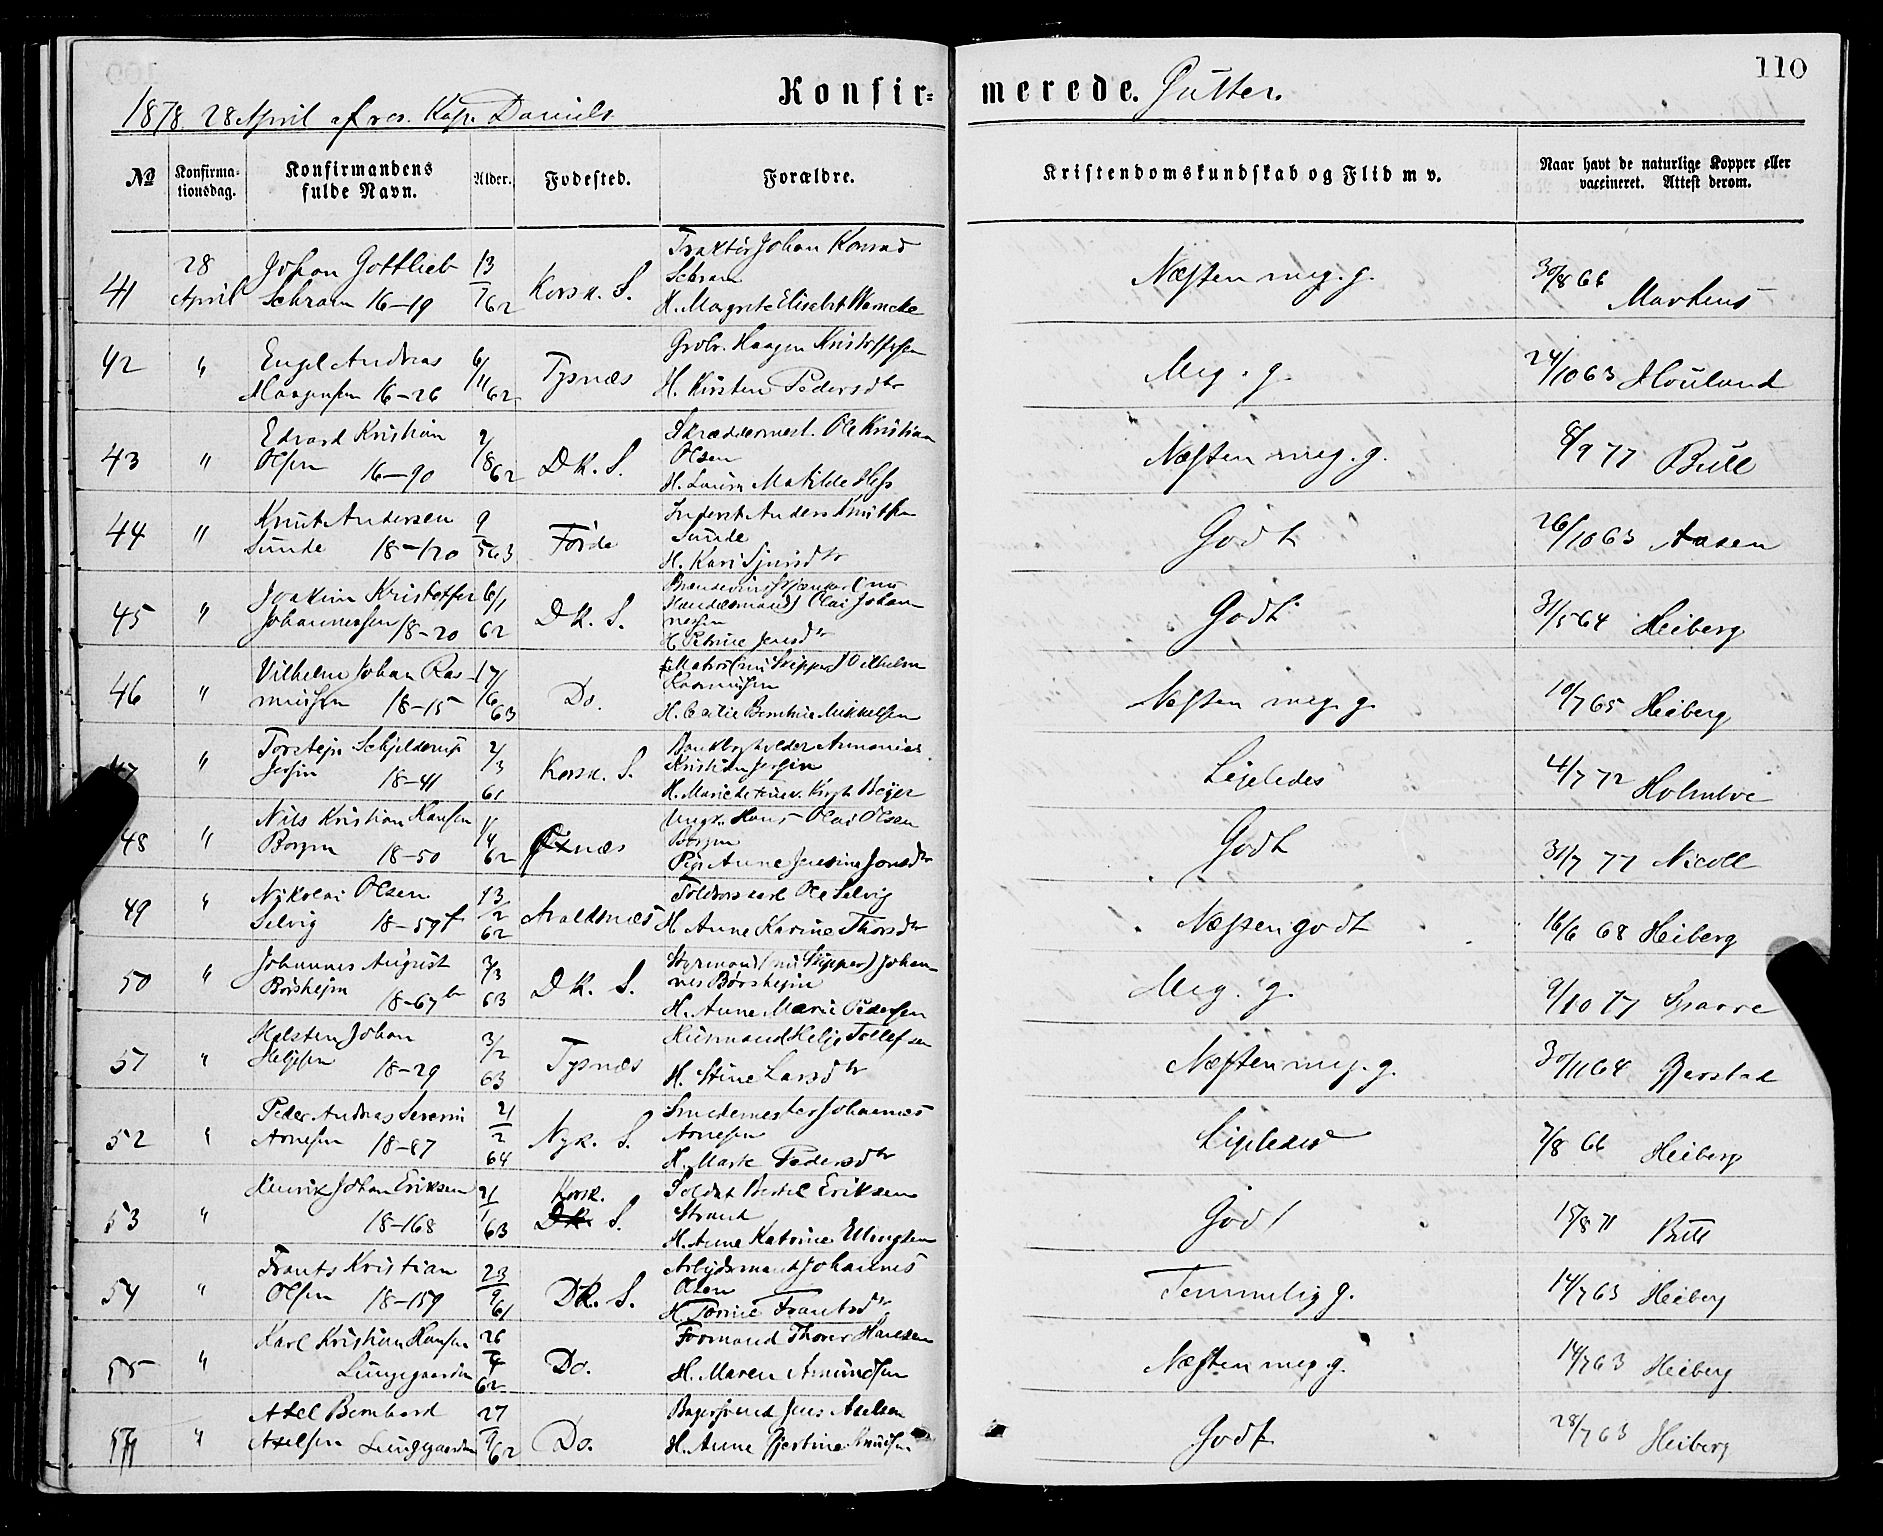 110
Konfirmerede. Gutter.
1878. 28 April af res. Kap. Daniels
№ Konfirmationsdag. Konfirmandens fulde Navn. Alder. Fødested. Forældre. Kristendomskundskab og Flid m v. Naar havt de naturlige Kopper eller vaccineret. Attest derom.
41 28 April Johan Gottlieb Schram 16-19 13/7 62 Korsk. S. Traktør Johan Konrad Schram H. Margrete Elisabet Warncke Næsten meg. g. 30/8 66 Martens
42 " Engel Andreas Haagensen 16-26 6/11 62 Tysnæs Grbr. Haagen Kristoffersen H. Kirsten Pedersdtr Meg. g. 24/10 63 Houland
43 " Edvard Kristian Olsen 16-90 2/8 62 DK. S. Skræddermest. Ole Kristian Olsen H. Laura Matilde Hess Næsten meg. g. 8/9 77 Bull
44 " Knut Andersen Sunde 18-120 9/5 63 Førde Inderst Anders Knutsen Sunde H. Kari Sjursdtr Godt 26/10 63 Aasen
45 " Joakim Kristoffer Johannessen 18-20 6/1 62 DK. S. Olai Johannessen H. Petrine Jensdtr Godt 31/5 64 Heiberg
46 " Vilhelm Johan Rasmussen 18-15 17/6 63 Do. Matros (nu Skipper) Vilhelm Rasmussen H. Cecilie Mikkelsen Næsten meg. g. 10/7 65 Heiberg
47 " Torstejn Schjelderup Jersin 18-41 2/3 61 Korsk. S. Kristian Jersin H. Beyer Ligeledes 4/7 72 Holmboe
48 " Nils Kristian Hansen Borgen 18-50 1/4 62 Ungk. Hans Olai Olsen Borgen Pige Anne Jensine Jonsdtr Godt 31/7 77 Nicoll
49 " Nikolai Olsen Selvig 18-59 f 13/2 62 Avaldsnæs Ole Selvig H. Anne Karine Thorsdtr Næsten godt 16/6 68 Heiberg
50 " Johannes August Børshejm 18-67 b 3/3 63 DK. S. Styrmand (nu Skipper) Johannes Børshejm H. Anne Marie Pedersen Meg. g. 9/10 77 Sparre
51 " Halsten Johan Heljesen 18-29 3/2 63 Tysnæs Husmand Helje Tollefsen H. Stine Larsdtr Næsten meg. g. 30/11 64 Gjerstad
52 " Peder Andreas Severin Arnesen 18-87 21/2 64 Nyk. S. Smedemester Johannes Arnesen H. Marte Pedersdtr Ligeledes 7/8 66 Heiberg
53 " Henrik Johan Eriksen 18-168 21/1 63 Korsk. S. Soldat Bertel Eriksen Strand H. Anne Katrine Ellingsen Godt 15/8 71 Bull
54 " Frants Kristian Olsen 18-159 23/9 61 DK. S. Arbejdsmand Johannes Olsen H. Frantsdtr Temmelig g. 14/7 63 Heiberg
55 " Karl Kristian Hansen Lungegaarden 26/4 62 Do. Formand Thorer Hansen H. Maren Amundsen Næsten meg. g. 14/7 63 Heiberg
" Axel Bernhard Axelsen Lungegaarden 27/9 62 Do. Bagersvend Jens Axelsen H. Anne Gjertine Godt 28/7 63 Heiberg